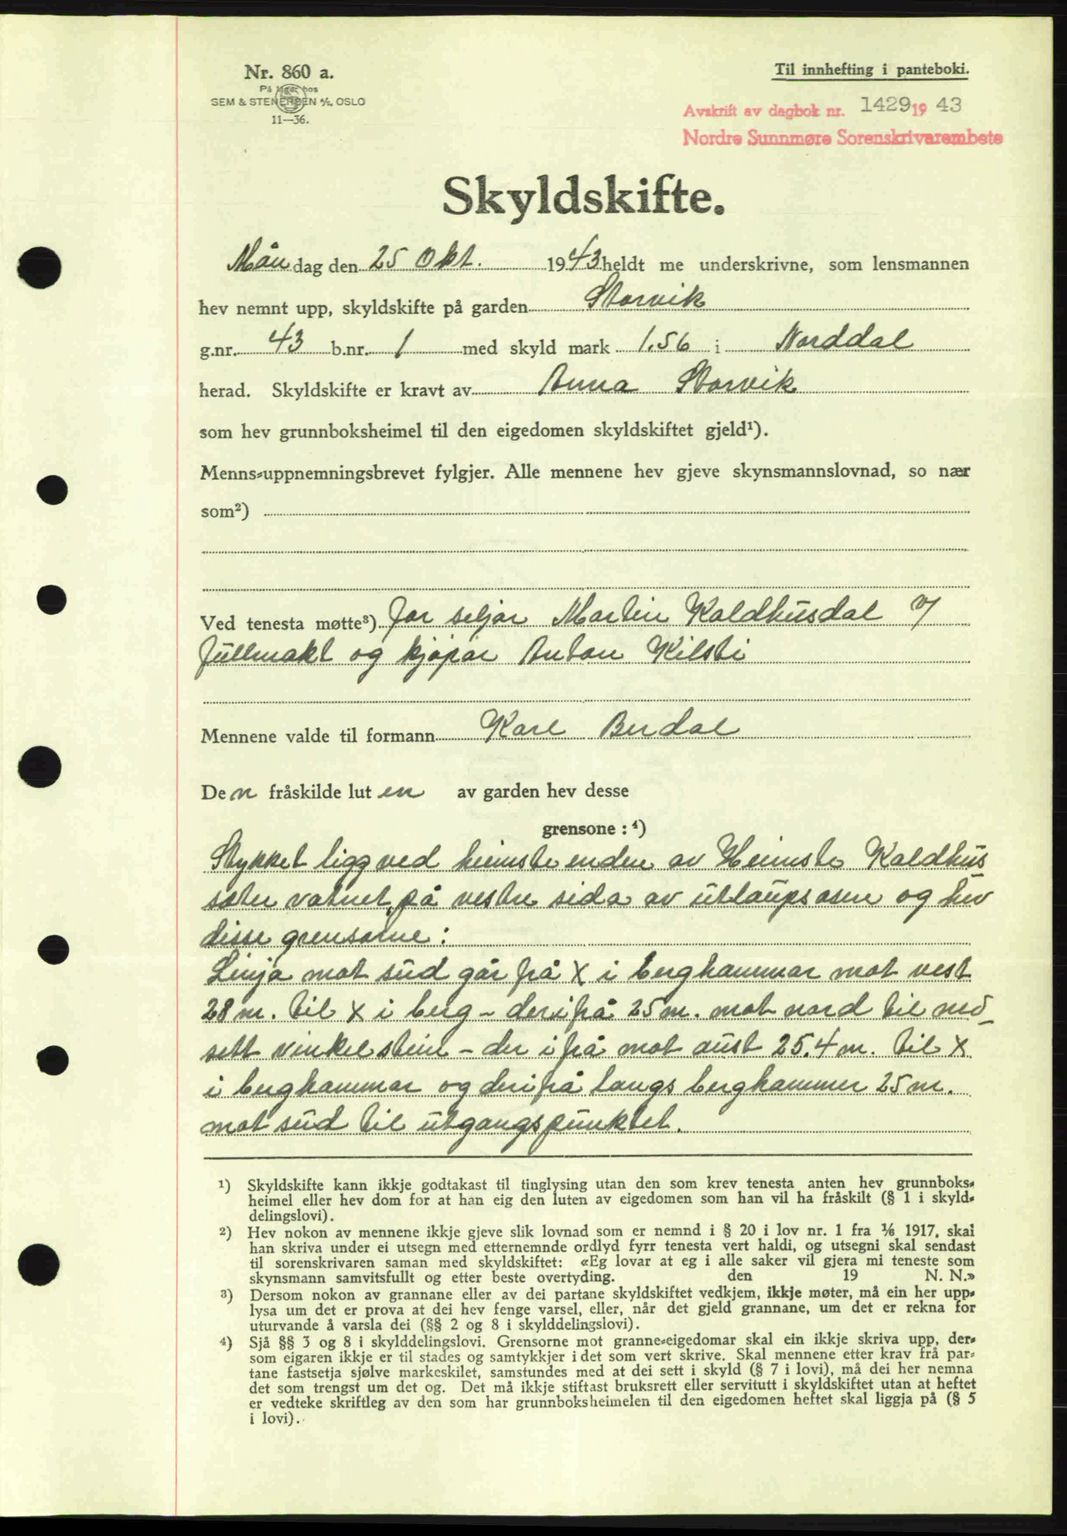 Nr. 860 a.
På lager hos
SEM & STENERSEN A/S, OSLO
11—36.
Til innhefting i panteboki.
Avskrift av dagbok nr. 1429 19 43
Nordre Sunnmøre Sorenskrivarembete
Skyldskifte.
Måndag den 25 Okt. 1943 heldt me underskrivne, som lensmannen
hev nemnt upp, skyldskifte på garden Storvik
g.nr. 43 b.nr. 1 med skyld mark 1.56 i Norddal
herad. Skyldskifte er kravt av Anna Storvik
som hev grunnboksheimel til den eigedomen skyldskiftet gjeld¹).
Menns-uppnemningsbrevet fylgjer. Alle mennene hev gjeve skynsmannslovnad, so nær
som²)
Ved tenesta møtte³) for seljar Martin Kaldhusdal e/
fullmakt og kjøpar Anton Kilsti
Mennene valde til formann Karl Berdal
Den fråskilde luten av garden hev desse
grensone: ⁴)
Stykket ligg ved heimste enden av Heimste Kaldhus
sæter vatnet, på vestre sida av utlaupsosen og hev
disse grensorne:
Linja mot süd går frå X i berghammar mot vest
28 m. til X i berg – der ifrå 25 m. mot nord til ned-
sett vinkelstein – der ifrå mot aust 25.4 m. til X
i berghammar og der ifrå langs berghammer 25 m.
mot süd til utgangspunktet.
¹) Skyldskifte kann ikkje godtakast til tinglysing utan den som krev tenesta anten hev grunnboks-
heimel eller hev dom for at han eig den luten av eigedomen som han vil ha fråskilt (§ 1 i skyld-
delingslovi).
²) Hev nokon av mennene ikkje gjeve slik lovnad som er nemnd i § 20 i lov nr. 1 fra 1/6 1917, skal
han skriva under ei utsegn med etternemnde ordlyd fyrr tenesta vert haldi, og utsegni skal sendast
til sorenskrivaren saman med skyldskiftet: «Eg lovar at eg i alle saker vil gjera mi teneste som
skynsmann samvitsfullt og etter beste overtyding. den 19 N. N.»
³) Dersom nokon av grannane eller av dei partane skyldskiftet vedkjem, ikkje møter, må ein her upp-
lysa um det er prova at dei hev fenge varsel, eller, når det gjeld grannane, um det er rekna for
uturvande å varsla dei (§§ 2 og 8 i skylddelingslovi).
⁴) Sjå §§ 3 og 8 i skylddelingslovi. Grensorne mot granne-eigedomar skal ein ikkje skriva upp, der-
som eigaren ikkje er til stades og samtykkjer i det som vert skrive. Skal mennene etter krav frå par-
tane fastsetja sjølve markeskilet, samstundes med at dei sett i skyld (§ 7 i lovi), må dei her nemna
det som trengst um det og. Det må ikkje stiftast bruksrett eller servitutt i skyldskiftet utan at heftet
er vedteke skriftleg av den som har grunnboksheimelen til den eigedomen heftet skal liggja på (§ 5
i lovi).